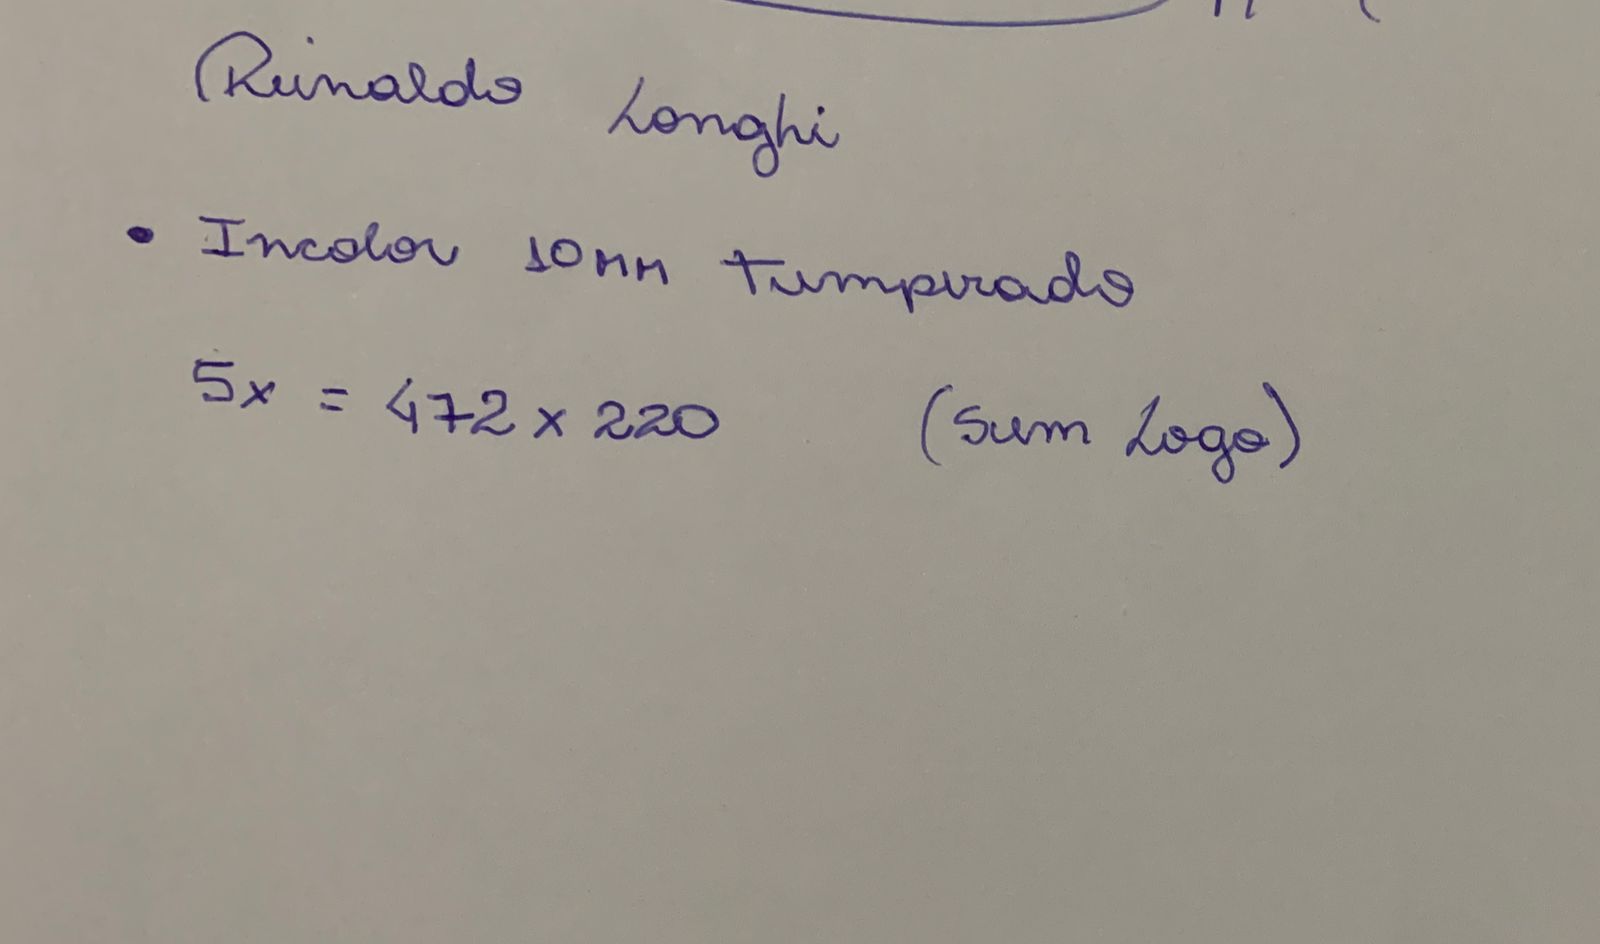 Reinaldo Longhi
• Incolor 10mm temperado
5x = 472 x 220 (Sem Logo)